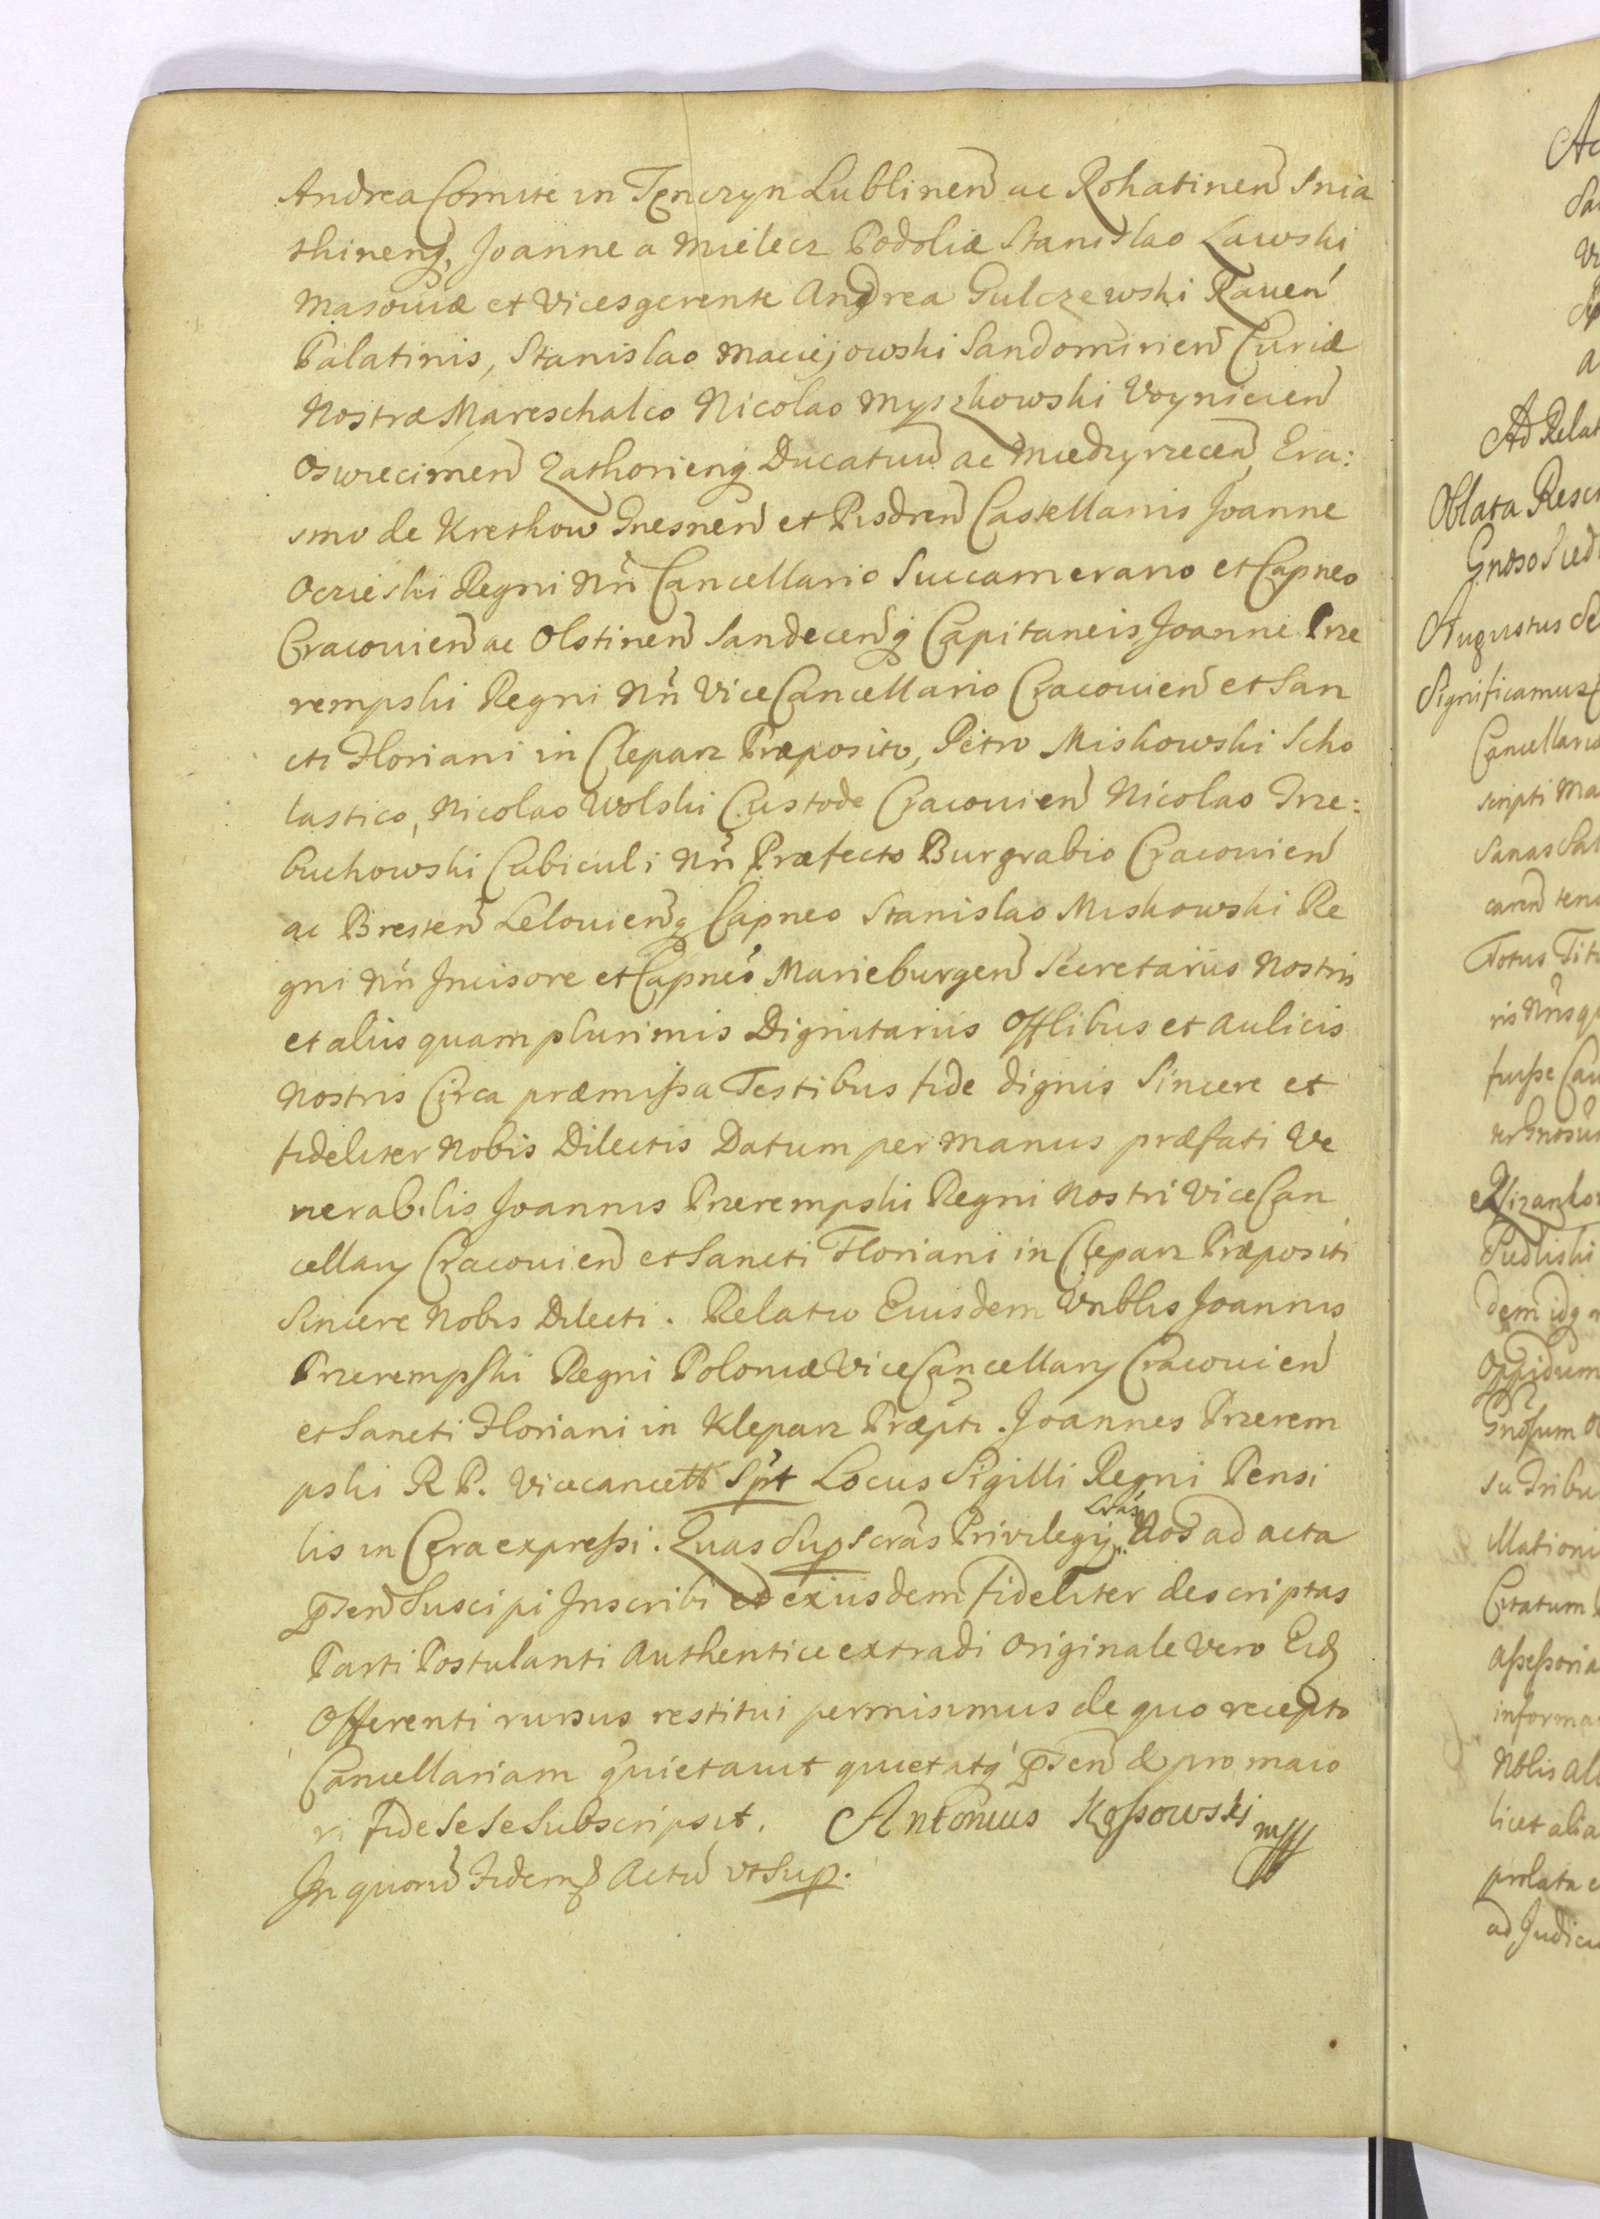 Andrea Comite in Tęnczyn Lublinen ac Rohatinen Snia
thinenq, Joanne a Mielecz Podoliæ Stanislao Lawski
Masoviæ et Vicesgerente Andrea Gulczewski Raven
Palatinis, Stanislao Maciejowski Sandomirien Curiæ
Nostræ Mareschalco Nicolao Myszkowski Voynicien
Oswiecimen Zathorienq Ducatuu ac Miedzyrzecen, Era:
smo de Krethow Gnesnen et Pisdren Castellanis Joanne
Oczieski Regni Nri Cancellario Succamerario et Capneo
Cracovien ac Olstinen Sandecenq Capitaneis Joanne Prze
rempski Regni Nri ViceCancellario Cracovien et San
cti Floriani in Cleparz Præposito, Petro Miskowski Scho
lastico, Nicolao Wolski Custode Cracovien Nicolao Trze:
buchowski Cubiculi Nri Præfecto Burgrabio Cracovien
ac Bresten Lelovienq Capneo Stanislao Miskowski Re
gni Nri Incisore et Capneo Marieburgen Secretariis Nostris
et aliis quam plurimis Dignitariis Offlibus et Aulicis
Nostris Circa præmissa Testibus fide dignis Sincere et
fideliter Nobis Dilectis Datum per manus præfati Ve
nerabilis Joannis Przerempski Regni Nostri ViceCan
cellary Cracovien et Sancti Floriani in Cleparz Præpositi
Sincere Nobis Dilecti. Relatio Eiusdem Vnblis Joannis
Przerempski Regni Poloniæ ViceCancellary Cracovien
et Sancti Floriani in Kleparz Præpti. Joannes Przerem
pski R P. Vicecancell Spt Locus Sigilli Regni Pensi
lis in Cera expressi. Quas Sup Scras Privilegij Lras Nos ad acta
psen Suscipi Inscribi et exiusdem fideliter descriptas
Parti Postulanti Authentice extradi Originale Vero Eid
Offerenti rursus restitui permisimus de quo recepto
Cancellariam quietavit quietatq psen & pro maio
ri fide se se subscripsit. Antonius Kossowski mpp
In quoru Fidem Actu ut Sup.
Ad Relat
Oblata Rescr
Augustus Se
Significamus
Cancellario
scripti Ma
Totus Tit
Oppidum
Citatum
Assessoria
informa
Nblis
licet alia
prolata e
ad Judiciu